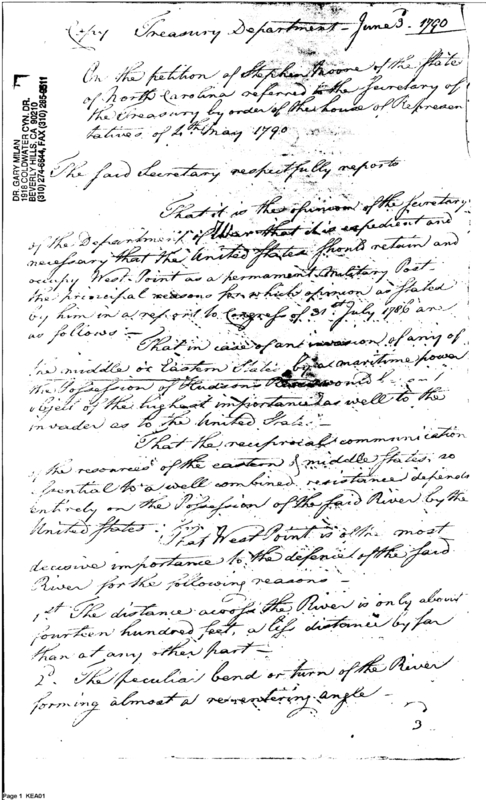 Copy Treasury Department - June 3d. 1790
On the petition of Stephen Moore of the State
of North Carolina referred to the Secretary of
the Treasury by order of the house of Represen
tatives of 4th May 1790
The said Secretary respectfully reports
That it is the opinion of the Secretary
of the Department of War that it is expedient and
necessary that the United States should retain and
occupy West-Point as a permanent Military Post
the principal reasons for which opinion as stated
by him in a report to Congress of 31st July 1786 are
as follows -
That in case of an invasion of any of
the middle or Eastern States by a maritime power
the Possession of Hudsons River would be an
object of the highest importance as well to the
invader as to the United States -
That the reciprocal communication
of the resources of the eastern & middle States, so
essential to a well combined resistance depends
entirely on the Possession of the said River by the
United States.
That West Point is of the most
decisive importance to the defence of the said
River for the following reasons -
1st The distance across the River is only about
fourteen hundred feet, a less distance by far
than at any other part -
2d. The peculiar bend or turn of the River
forming almost a reentering angle -
3
DR. GARY MILAN
1918 COLDWATER CYN. DR.
BEVERLY HILLS, CA 90210
(310) 274-6844, FAX (310)
Page 1 KEA01